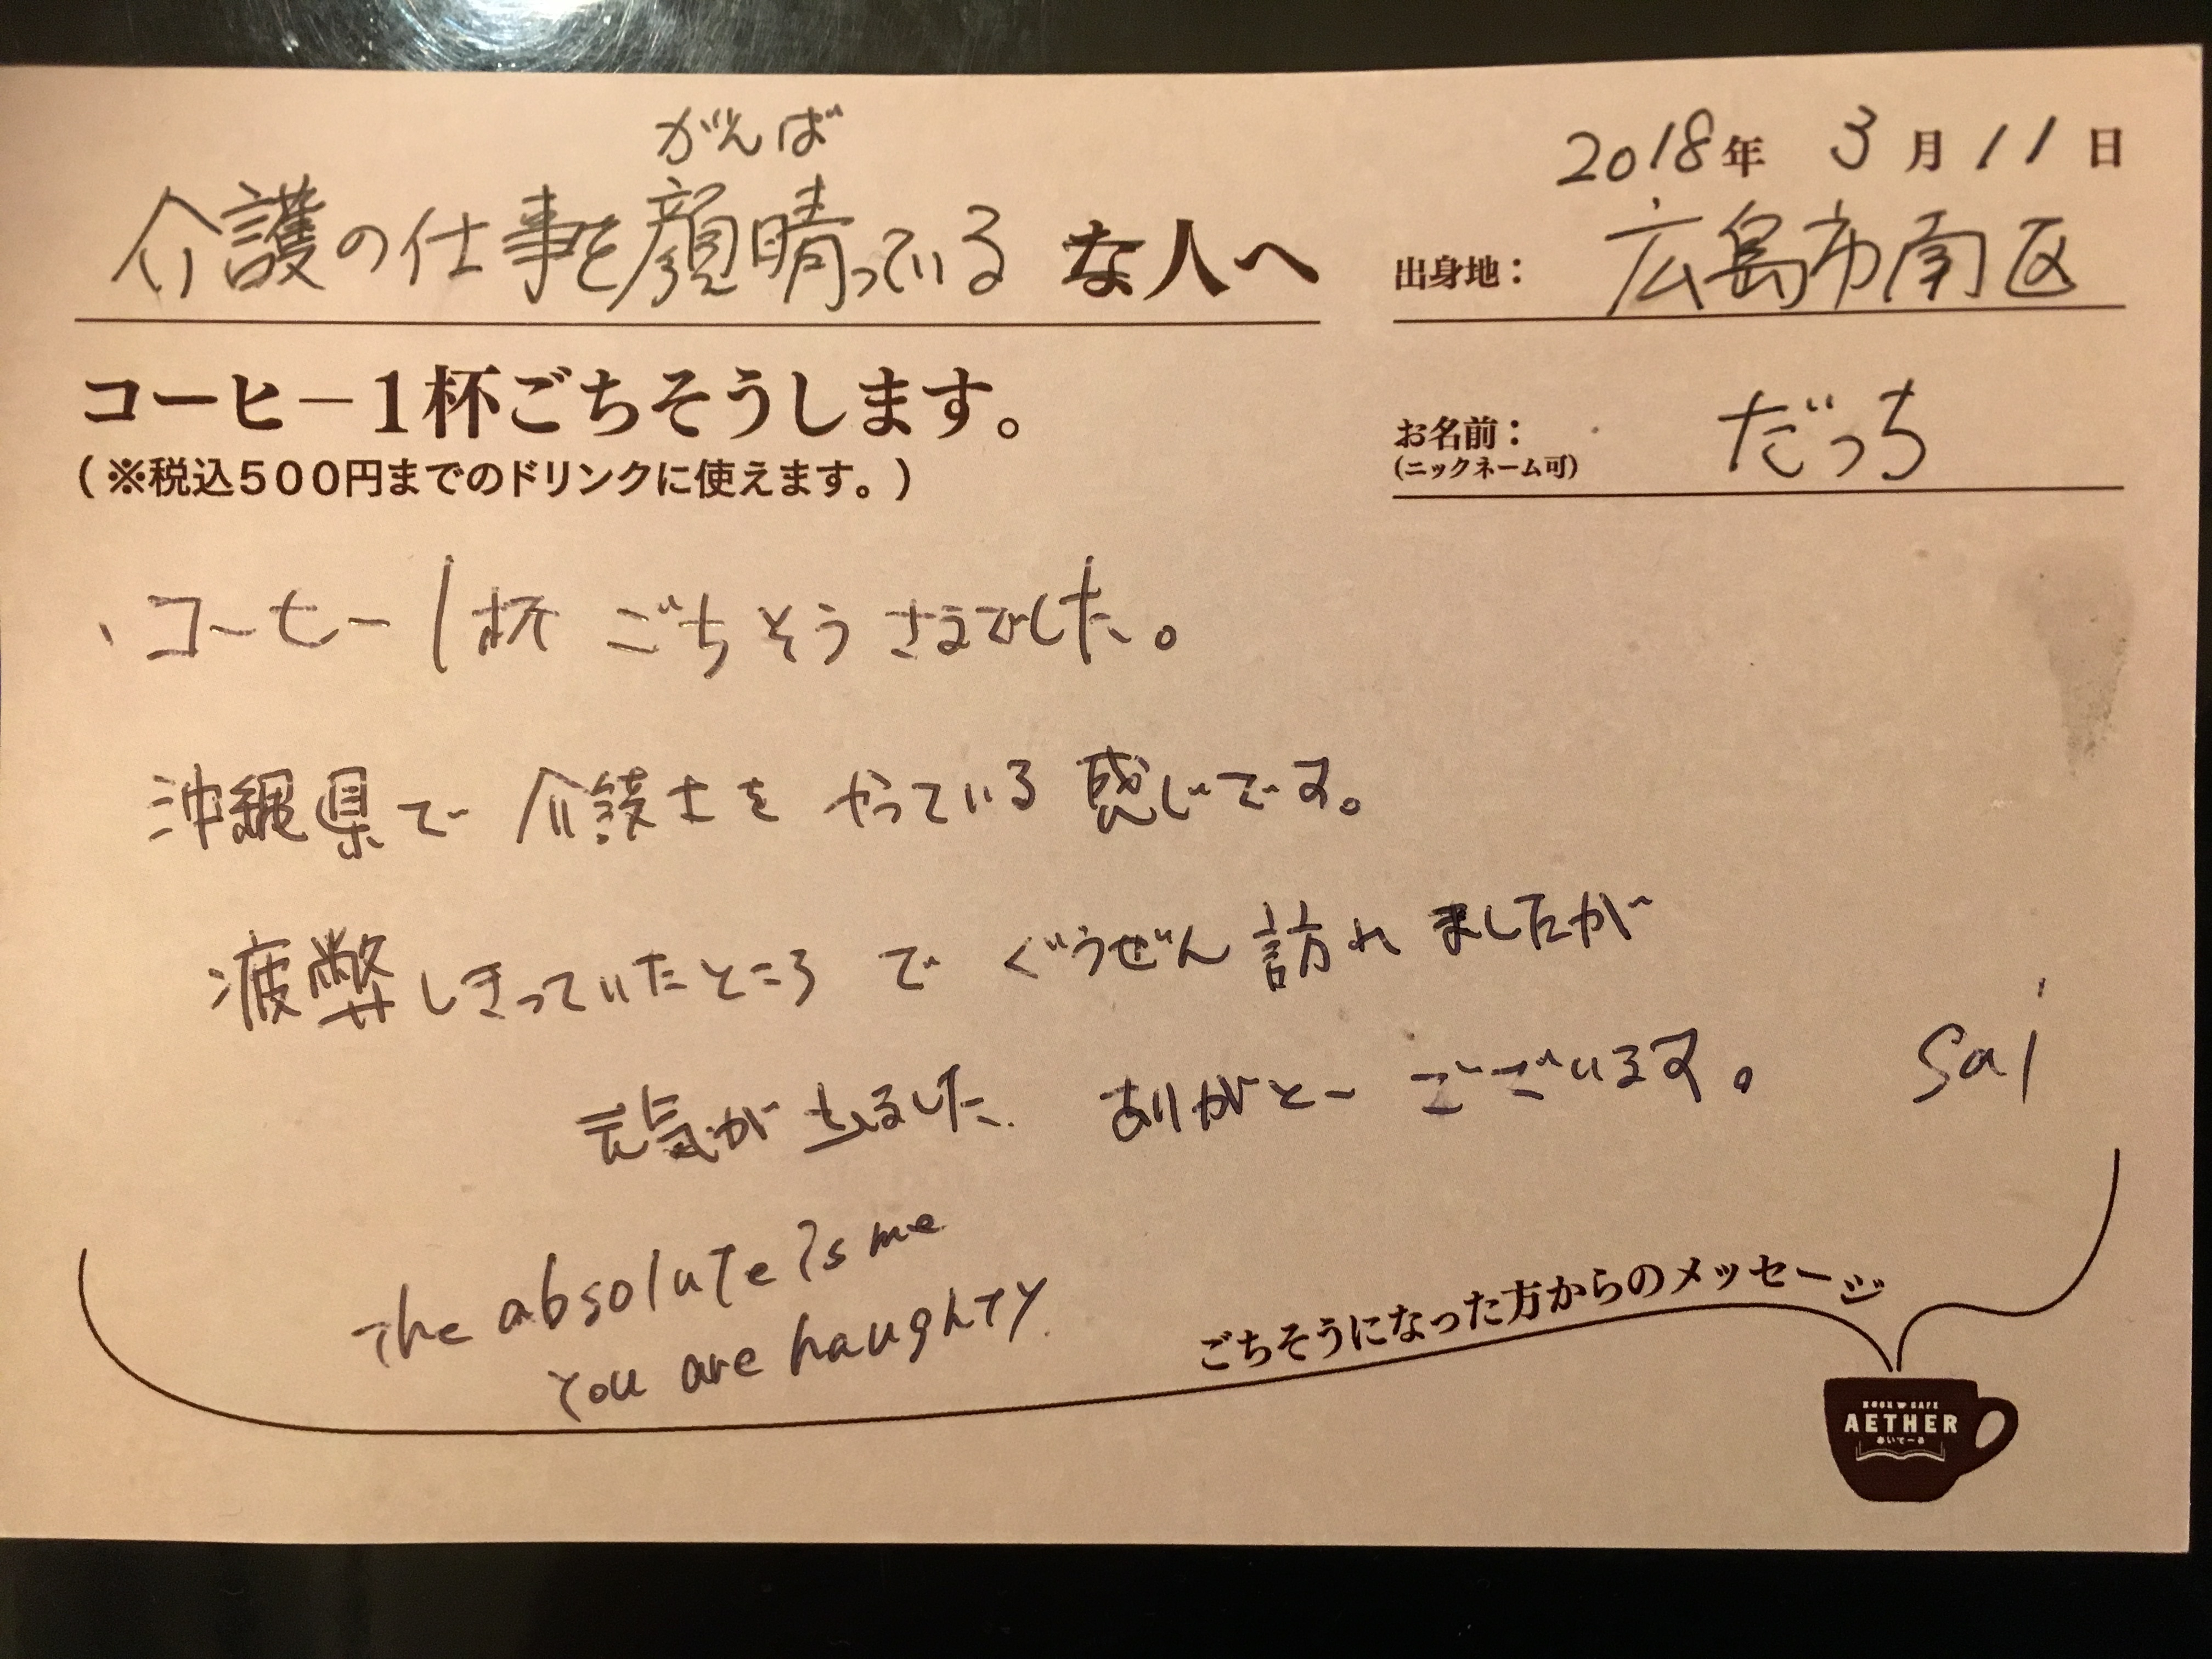 がんば
介護の仕事を顔晴っている な人へ
2018年 3月11日
出身地： 広島市南区
コーヒー1杯ごちそうします。
(※税込500円までのドリンクに使えます。)
お名前： だっち
(ニックネーム可)
、コーヒー1杯 ごちそうさまでした。
沖縄県で 介護士を やっている 感じです。
疲弊しきっていたところ で ぐうぜん 訪れ ましたが
元気がちょました ありがとー ございます。 Sai
The absolute is me
You are haughty.
ごちそうになった方からのメッセージ
BOOK CAFE
AETHER
あいてーる